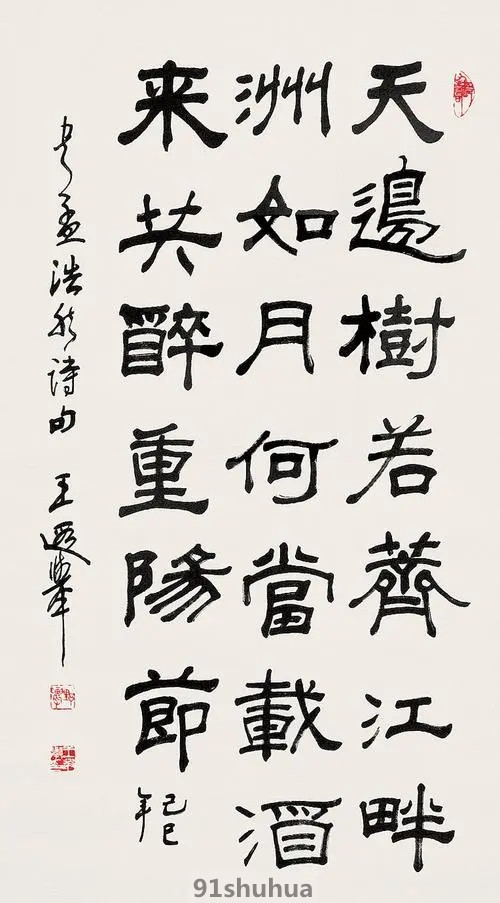 天邊樹若薺江畔
洲如月何當載酒
来共醉重陽節
己巳
年
书孟浩然詩句 王遐舉
91shuhua